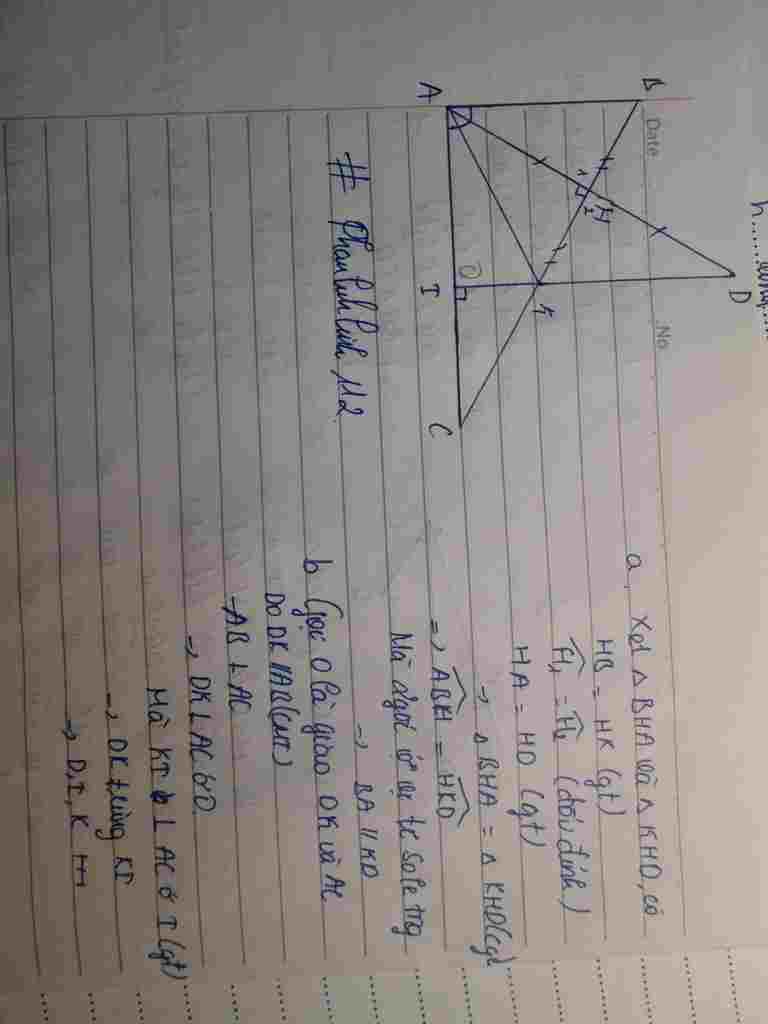 h......ường....
Date
No
A
B
D
H
1
2
K
O
I
C
# Phanlinhlinh M2
a, Xét △ BHA và △ KHD, có
HB = HK (gt)
Ĥ₁ = Ĥ₂ (đối đỉnh)
HA = HD (gt)
→ △ BHA = △ KHD (cgc)
=> ABH = HKD
Mà 2 góc ở vị trí sole trg
→ BA // KD
b Gọi O là giao DK và AC
Do DK // AB (cmt)
- AB ⊥ AC
→ DK ⊥ AC ở O
Mà KI ⊥ AC ở I (gt)
→ DK trùng KI
→ D, I, K